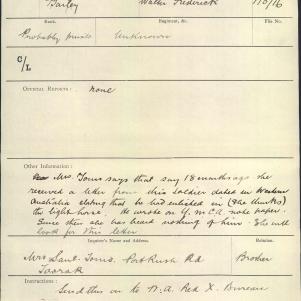 Bailey Walter Frederick 710/16
Rank. Regiment, &c. File No.
Probably private Unknown
C/L
OFFICIAL REPORTS : none
Other Information :
Mrs. Toms says that say 18 months ago she
received a letter from this soldier dated in Western
Australia stating that he had enlisted in (she thinks)
the light horse. He wrote on Y.M.C.A. note paper.
Since then she has heard nothing of him. She will
look for this letter
Inquirer's Name and Address. Relation.
Mrs Toms. Rd Brother
Toorak
Instructions :
Send this on to W.A. Red X. Bureau